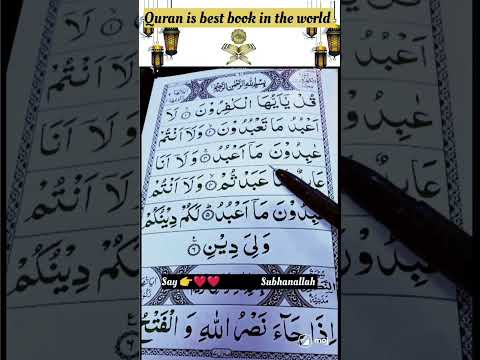 Quran is best book in the world
بِسْمِ اللّٰهِ الرَّحْمٰنِ الرَّحِيْمِ
قُلْ يٰۤاَيُّهَا الْكٰفِرُوْنَ ۙ۱ لَاۤ
اَعْبُدُ مَا تَعْبُدُوْنَ ۙ۲ وَلَاۤ اَنْتُمْ
عٰبِدُوْنَ مَاۤ اَعْبُدُ ۚ۳ وَلَاۤ اَنَا
عَابِدٌ مَّا عَبَدْتُّمْ ۙ۴ وَلَاۤ اَنْتُمْ
عٰبِدُوْنَ مَاۤ اَعْبُدُ ؕ۵ لَكُمْ دِيْنُكُمْ
وَلِيَ دِيْنِ ۠۶
Say 👉❤️❤️ Subhanallah
اِذَا جَآءَ نَصْرُ اللّٰهِ وَ الْفَتْحُ
moj